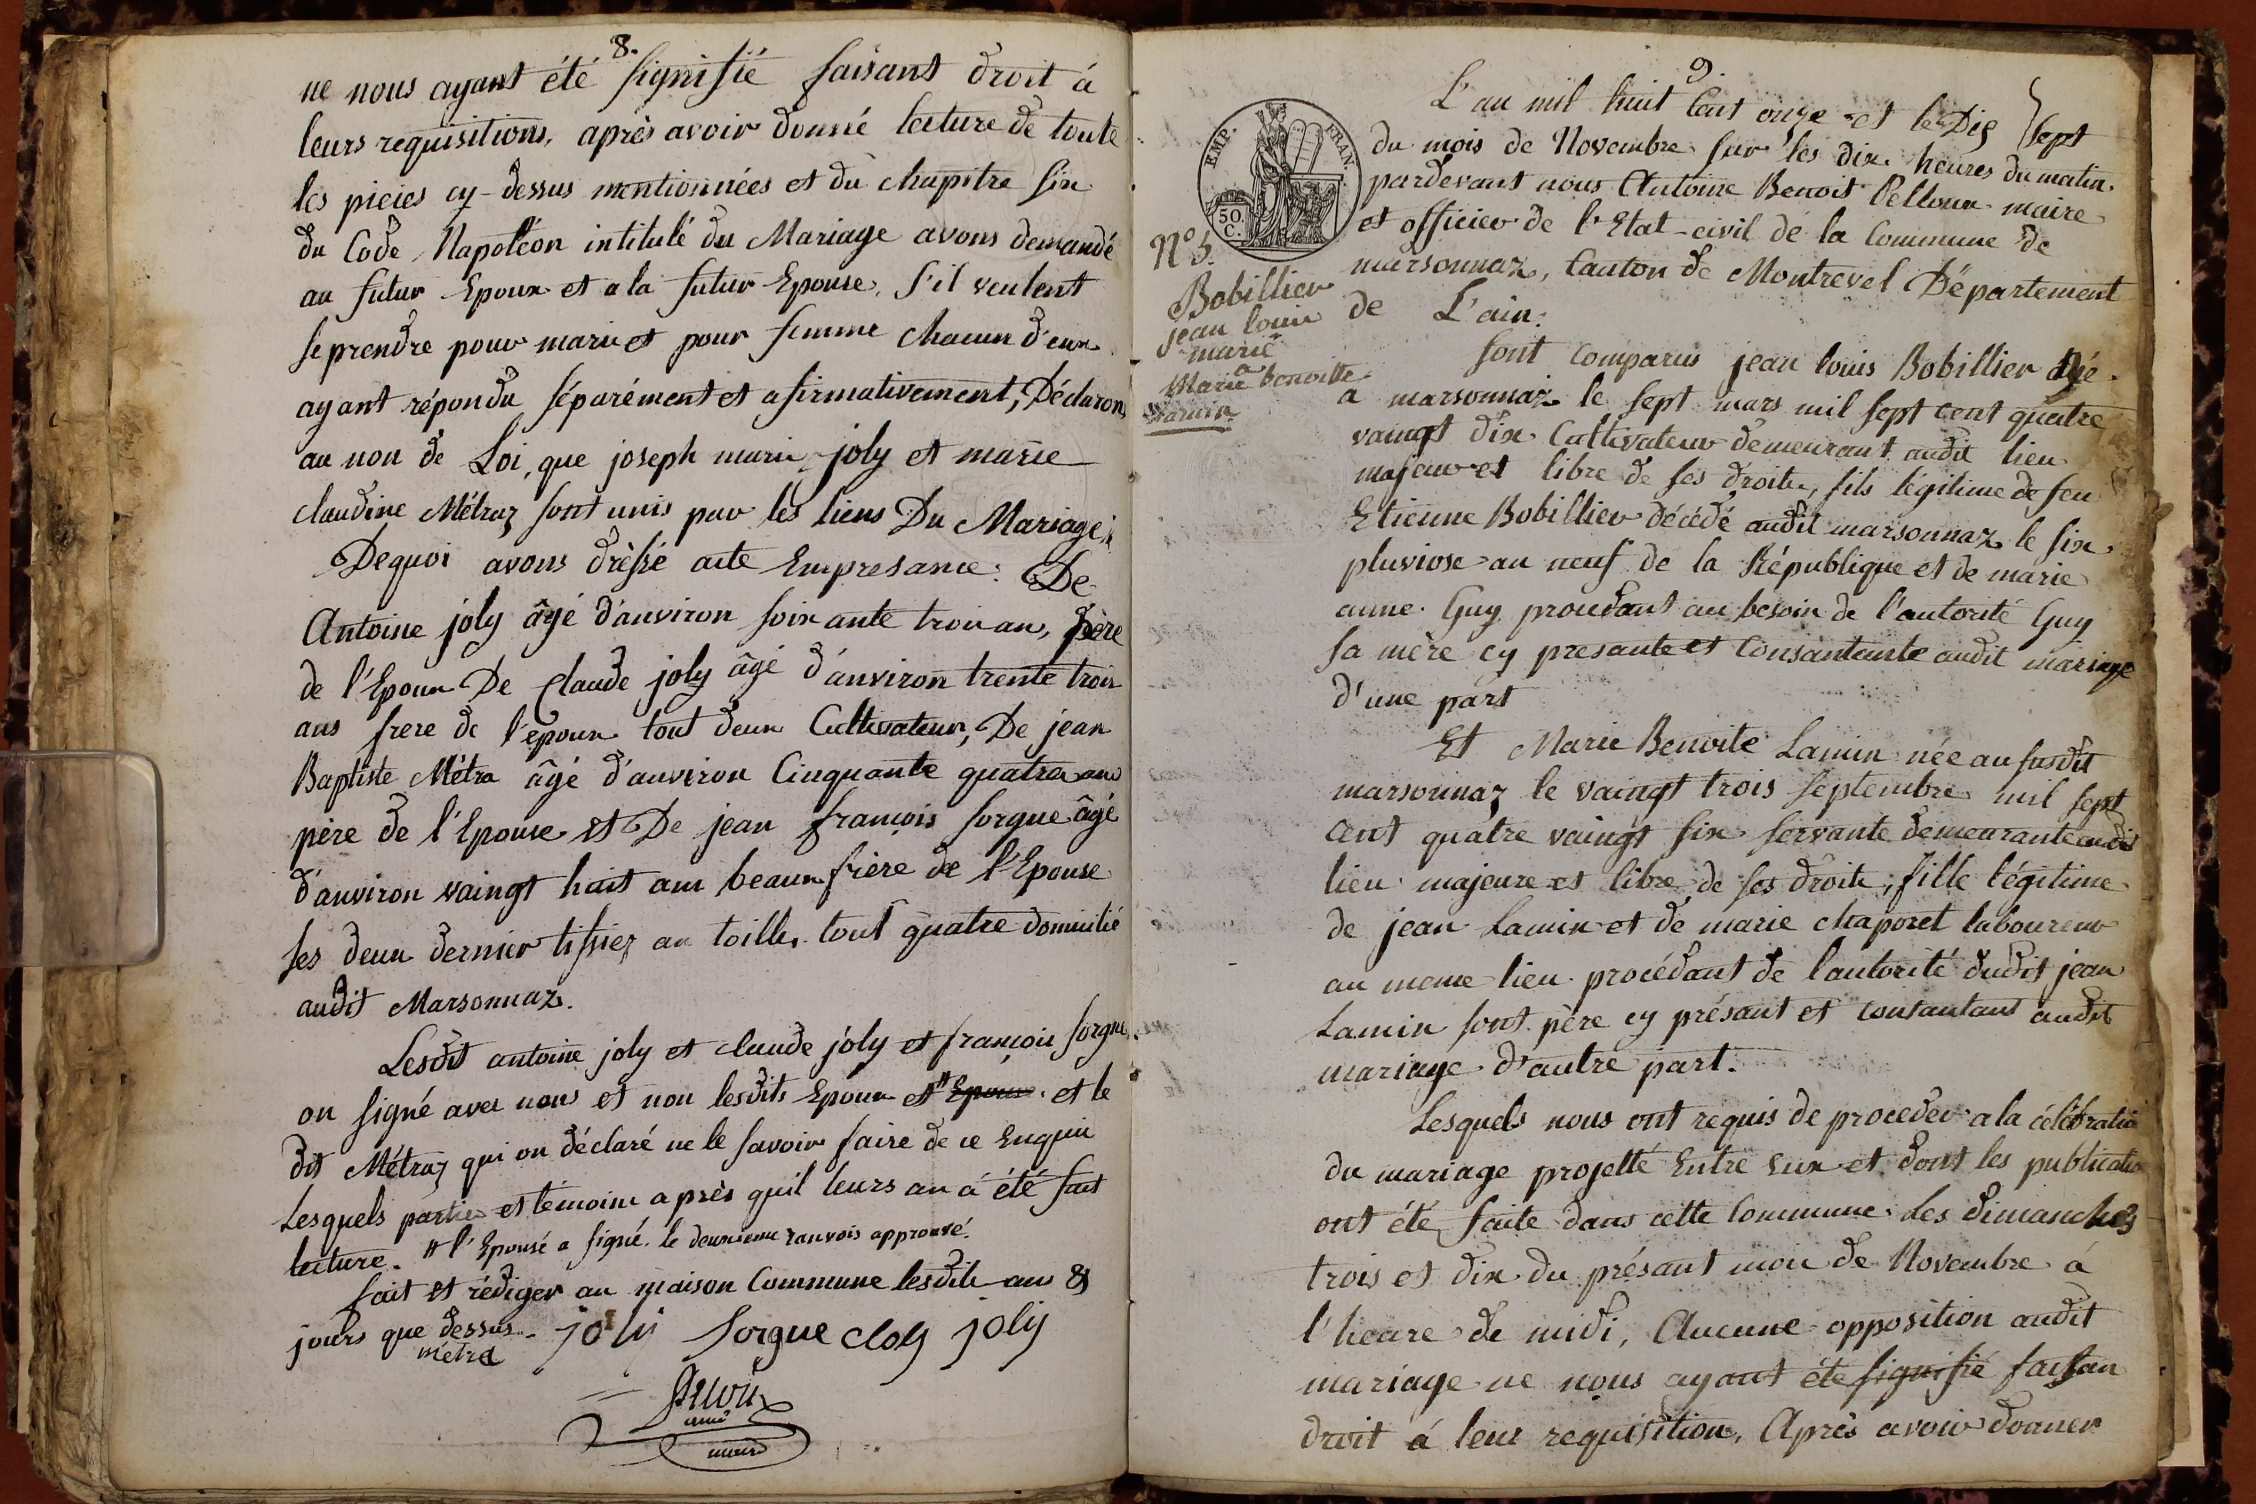 8.
ne nous ayant été signifié faisant droit á
leurs requisitions, après avoir donné lecture de toute
les pieies cy-dessus mentionnées et du chapitre six
du Code Napoléon intitulé du Mariage avons demandé
au futur Epoux et a la futur Epouse, s'il veulent
se prendre pour marie et pour femme chacun d'eux
ayant répondu séparément et afirmativement, Déclarons
au non de Loi, que joseph marie joly et marie
claudine Métraz sont unis par les liens Du Mariage
De quoi avons drèssé acte Empresance: De
Antoine joly âgé d'anviron soixante trois an, père
de l'Epoux De Claude joly âgé d'anviron trente trois
ans frere de l'epoux tout deux Cultivateur, De jean
Baptiste Métra âgé d'anviron Cinquante quatra ans
père de l'Epouse et De jean françois sorgue âgé
d'anviron vaingt huit ans beaux frère de l'Epouse
les deux dernier tissiez an toille, tout quatre domicilié
audit Marsonnaz.
Lesdit antoine joly et claude joly et françois sorgue
on signé avec nous et non lesdits Epoux et # Epouse et le
dit Métraz qui on déclaré ne le savoir faire de ce Enquis
Lesquels parties et témoins après quil leurs an á été fait
lecture. # l'Epousé a signé. le deuxieme ranvois approuvé.
fait et rédiger an maison Commune lesdits ans et
jours que dessus. joly sorgue clog joly
métra
maire
9.
L'an mil huit Cent onze et le Dix sept
du mois de Novembre sur les dix heures du matin.
pardevant nous Antoine Benoit maire
et officier de l'Etat-civil de la Commune de
marsonnaz, Canton de Montrevel Département
de L'ain:
EMP. FRAN.
50. C.
N° 5.
Bobillier
jean louis
marié
a
Marie benoitte
Lamin
sont comparus jean louis Bobillier Né
a marsonnaz le sept mars mil sept cent quatre
vaingt dix Cultivateur demeurant audit lieu
majeur et libre de ses droits, fils légitime de feu
Etienne Bobillier décédé audit marsonnaz le six
pluviose an neuf de la République et de marie
anne Guy proudant au besoin de l'autorité Guy
sa mère cy presante et Consantante audit mariage
d'une part
Et Marie Benoite Lamin née au susdit
marsonnaz le vaingt trois septembre mil sept
cent quatre vaingt six servante demeurante audit
lieu majeure et libre de ses droits, fille légitime
de jean Lamin et de marie chaporet laboureur
au meme lieu procédant de l'autorité dudit jean
Lamin sont père cy présant et consantant audit
mariage d'autre part.
Lesquels nous ont requis de proceder a la célébration
du mariage projetté Entre eux et dont les publication
ont été faite dans cette Commune Les dimanches
trois et dix du présant mois de Novembre á
l'heure de midi, Aucune opposition audit
mariage ne nous ayant éte signifié faisan
droit á leur requisition, Après avoir donner